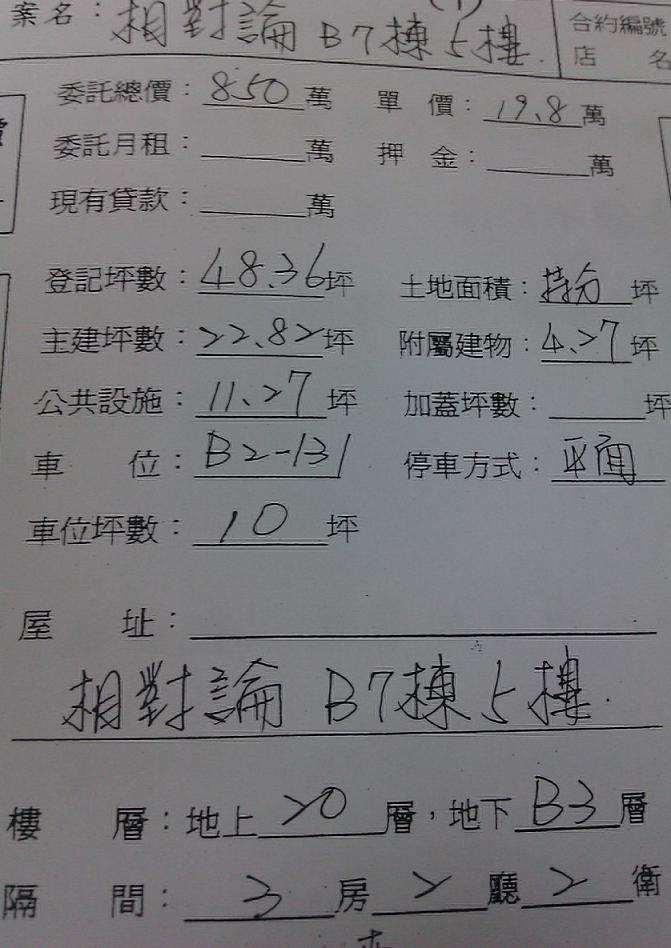 案名：相對論 B7棟5樓 合約編號
店 名
委託總價：850萬 單 價：19.8萬
委託月租：萬 押 金：萬
現有貸款：萬
登記坪數：48.36坪 土地面積：持分坪
主建坪數：22.82坪 附屬建物：4.27坪
公共設施：11.27坪 加蓋坪數：坪
車 位：B2-131 停車方式：平面
車位坪數：10坪
屋 址：
相對論 B7棟5樓
樓 層：地上20層，地下B3層
隔 間：3房2廳2衛